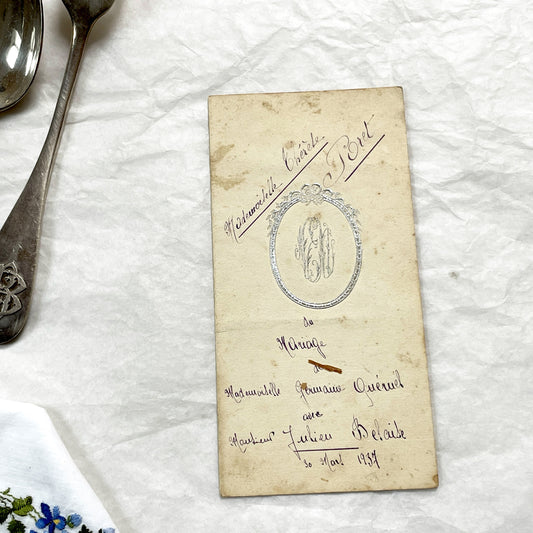 Mademoiselle Thérèse
Poret
du
Mariage
de
Mademoiselle Germaine Quéruel
avec
Monsieur Julien Delaite
30 Mars 1937